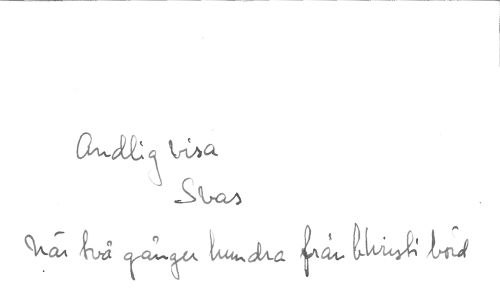 Andlig visa
Svas
När två gånger hundra från Christi börd